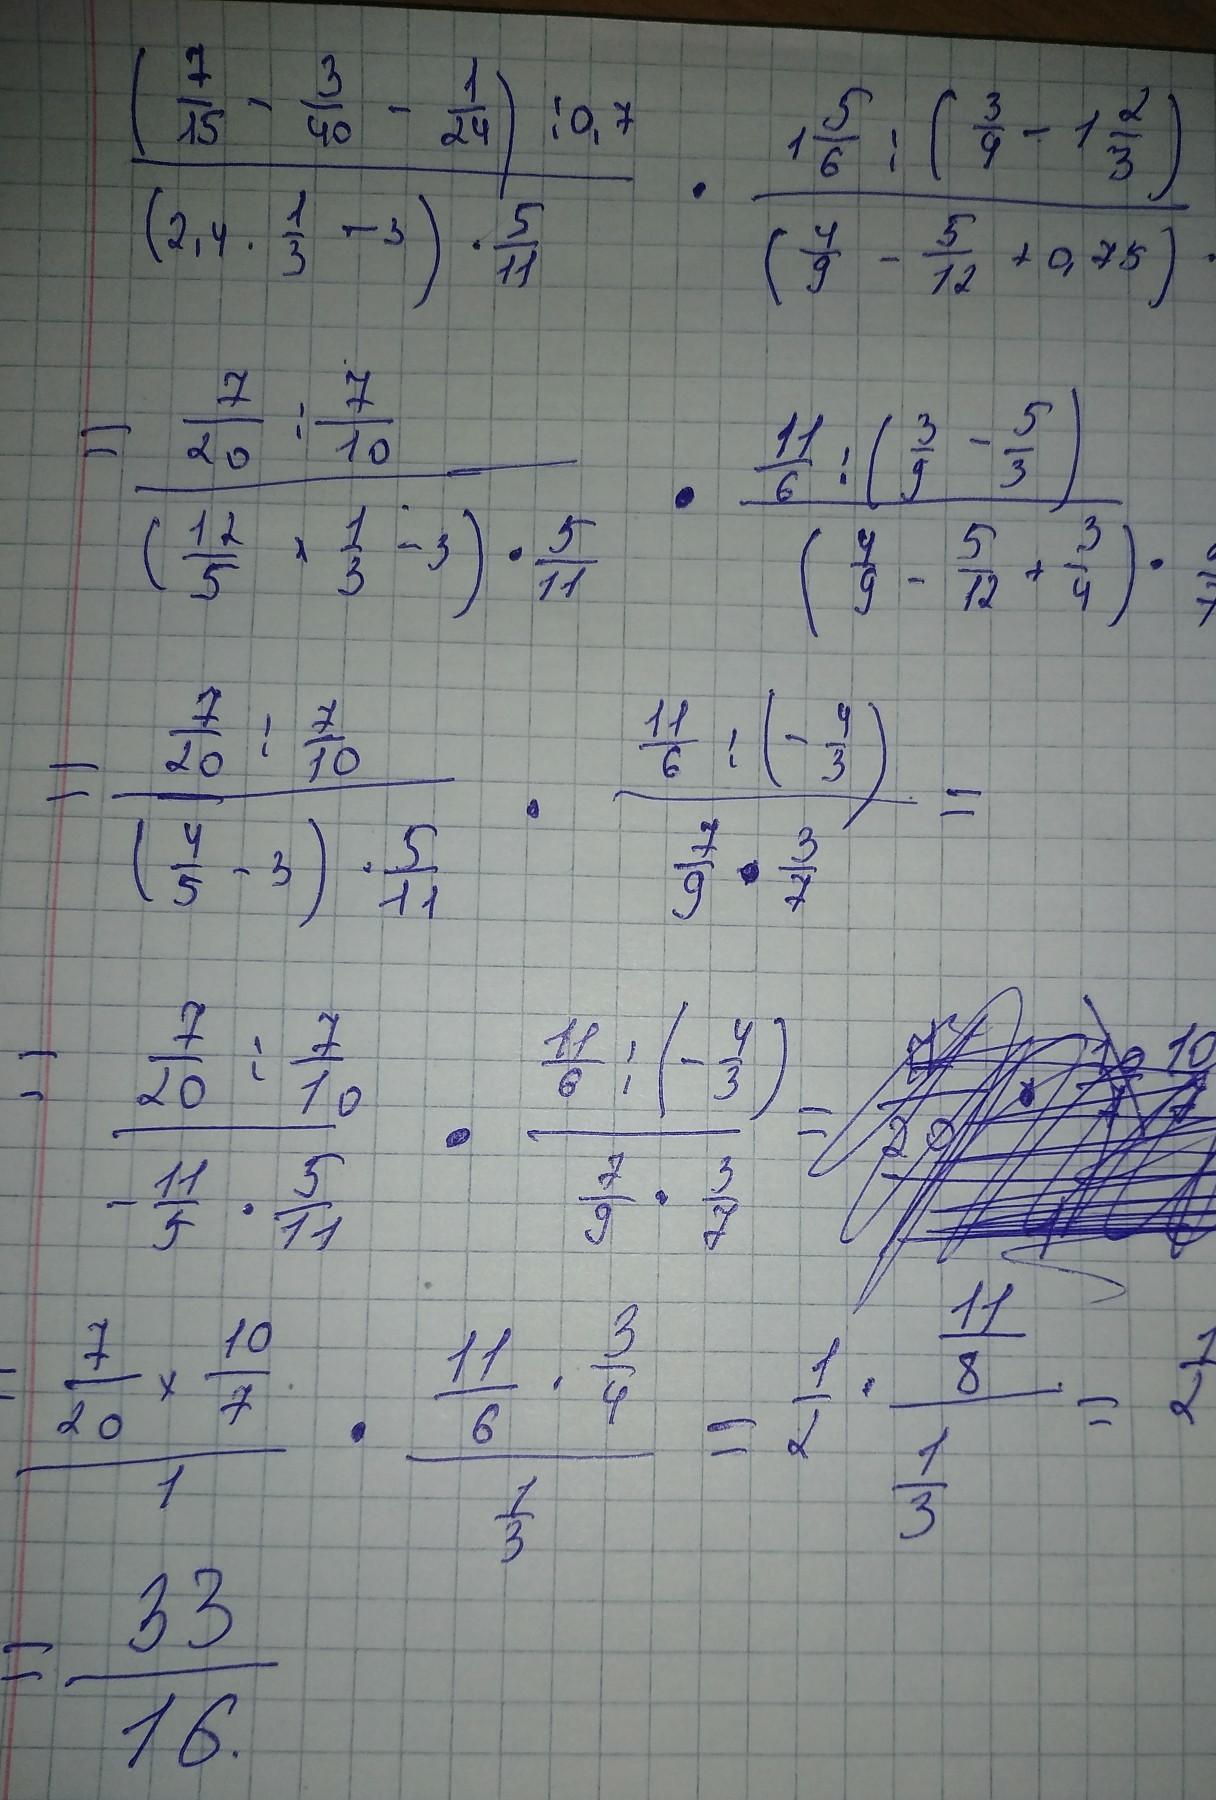 (7/15 - 3/40 - 1/24) : 0,7 / (2,4 · 1/3 - 3) · 5/11 · 1 5/6 : (3/9 - 1 2/3) / (4/9 - 5/12 + 0,75) ·
= 7/20 : 7/10 / (12/5 × 1/3 - 3) · 5/11 · 11/6 : (3/9 - 5/3) / (4/9 - 5/12 + 3/4) ·
= 7/20 : 7/10 / (4/5 - 3) · 5/11 · 11/6 : (-4/3) / 7/9 · 3/7 =
= 7/20 : 7/10 / -11/5 · 5/11 · 11/6 : (-4/3) / 7/9 · 3/7 =
= 7/20 × 10/7 / 1 · 11/6 · 3/4 / 1/3 = 1/2 · 11/8 / 1/3 = 1/2
= 33/16.